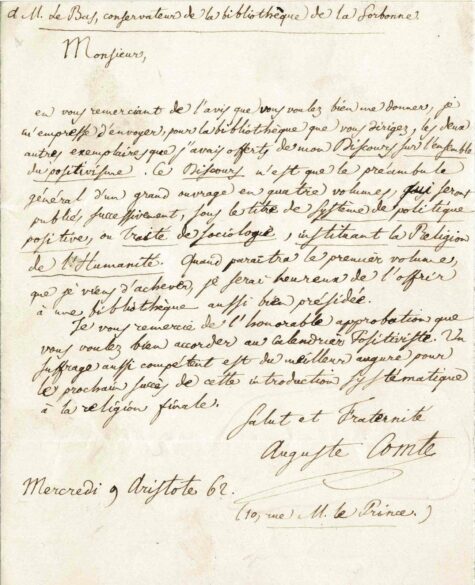 A M. Le Bas, conservateur de la bibliothèque de la Sorbonne.
Monsieur,
en vous remerciant de l'avis que vous voulez bien me donner, je
m'empresse d'envoyer, pour la bibliothèque que vous dirigez, les deux
autres exemplaires que j'avais offerts de mon Discours sur l'ensemble
du positivisme. Ce Discours n'est que le préambule
général d'un grand ouvrage en quatre volumes, qui seront
publiés successivement, sous le titre de Système de politique
positive, ou Traité de Sociologie, instituant la Religion
de l'Humanité. Quand paraîtra le premier volume,
que je viens d'achever, je serai heureux de l'offrir
à une bibliothèque aussi bien présidée.
Je vous remercie de l'honorable approbation que
vous voulez bien accorder au Calendrier Positiviste. Un
suffrage aussi compétent est du meilleur augure pour
le prochain succès de cette introduction systématique
à la religion finale.
Salut et Fraternité
Auguste Comte
Mercredi 9 Aristote 62.
(10, rue M. le Prince.)